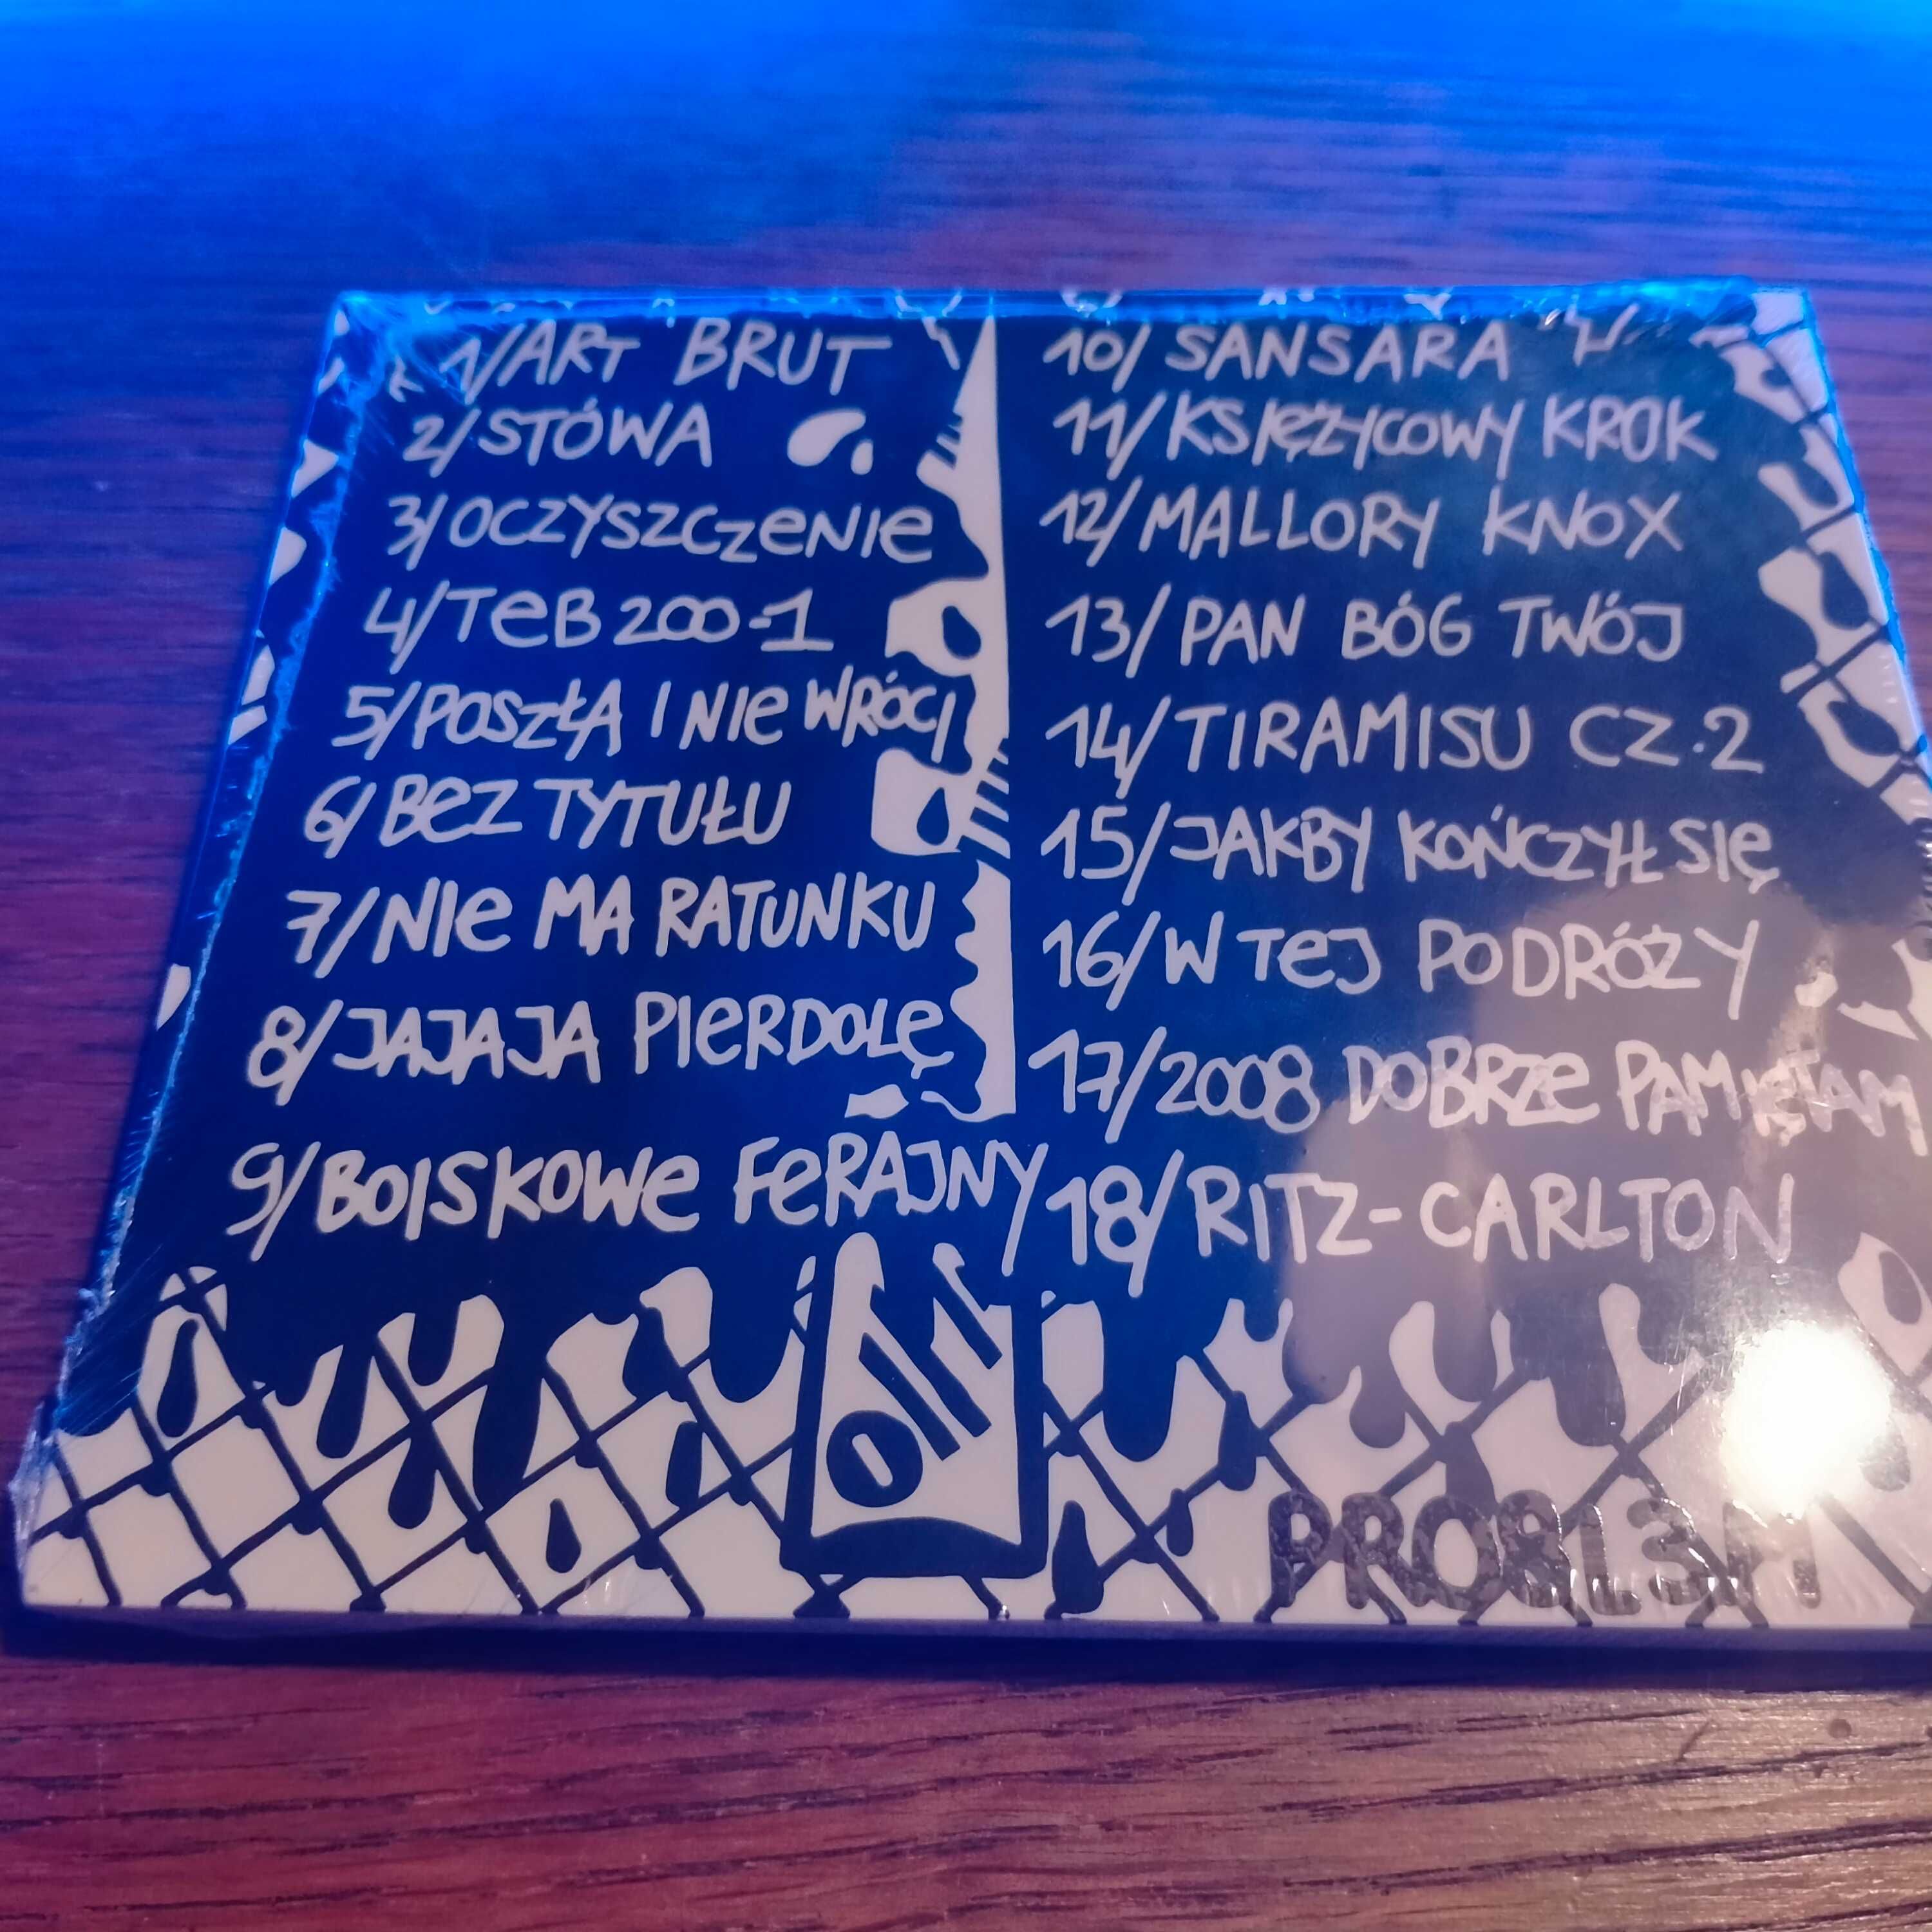 1/ART BRUT
2/STÓWA
3/OCZYSZCZeNIe
4/TeB 200-1
5/POSZŁA I NIe WRÓCI
6/BeZ TYTUŁU
7/NIe MA RATUNKU
8/JAJAJA PIeRDOLĘ
9/BOISKOWe FeRAJNY
10/SANSARA
11/KSIĘŻYCOWY KROK
12/MALLORY KNOX
13/PAN BÓG TWÓJ
14/TIRAMISU CZ.2
15/JAKBY KOŃCZYŁ SIĘ
16/W TeJ PODRÓŻY
17/2008 DOBRZe PAMIĘTAM
18/RITZ-CARLTON
PRO8L3M